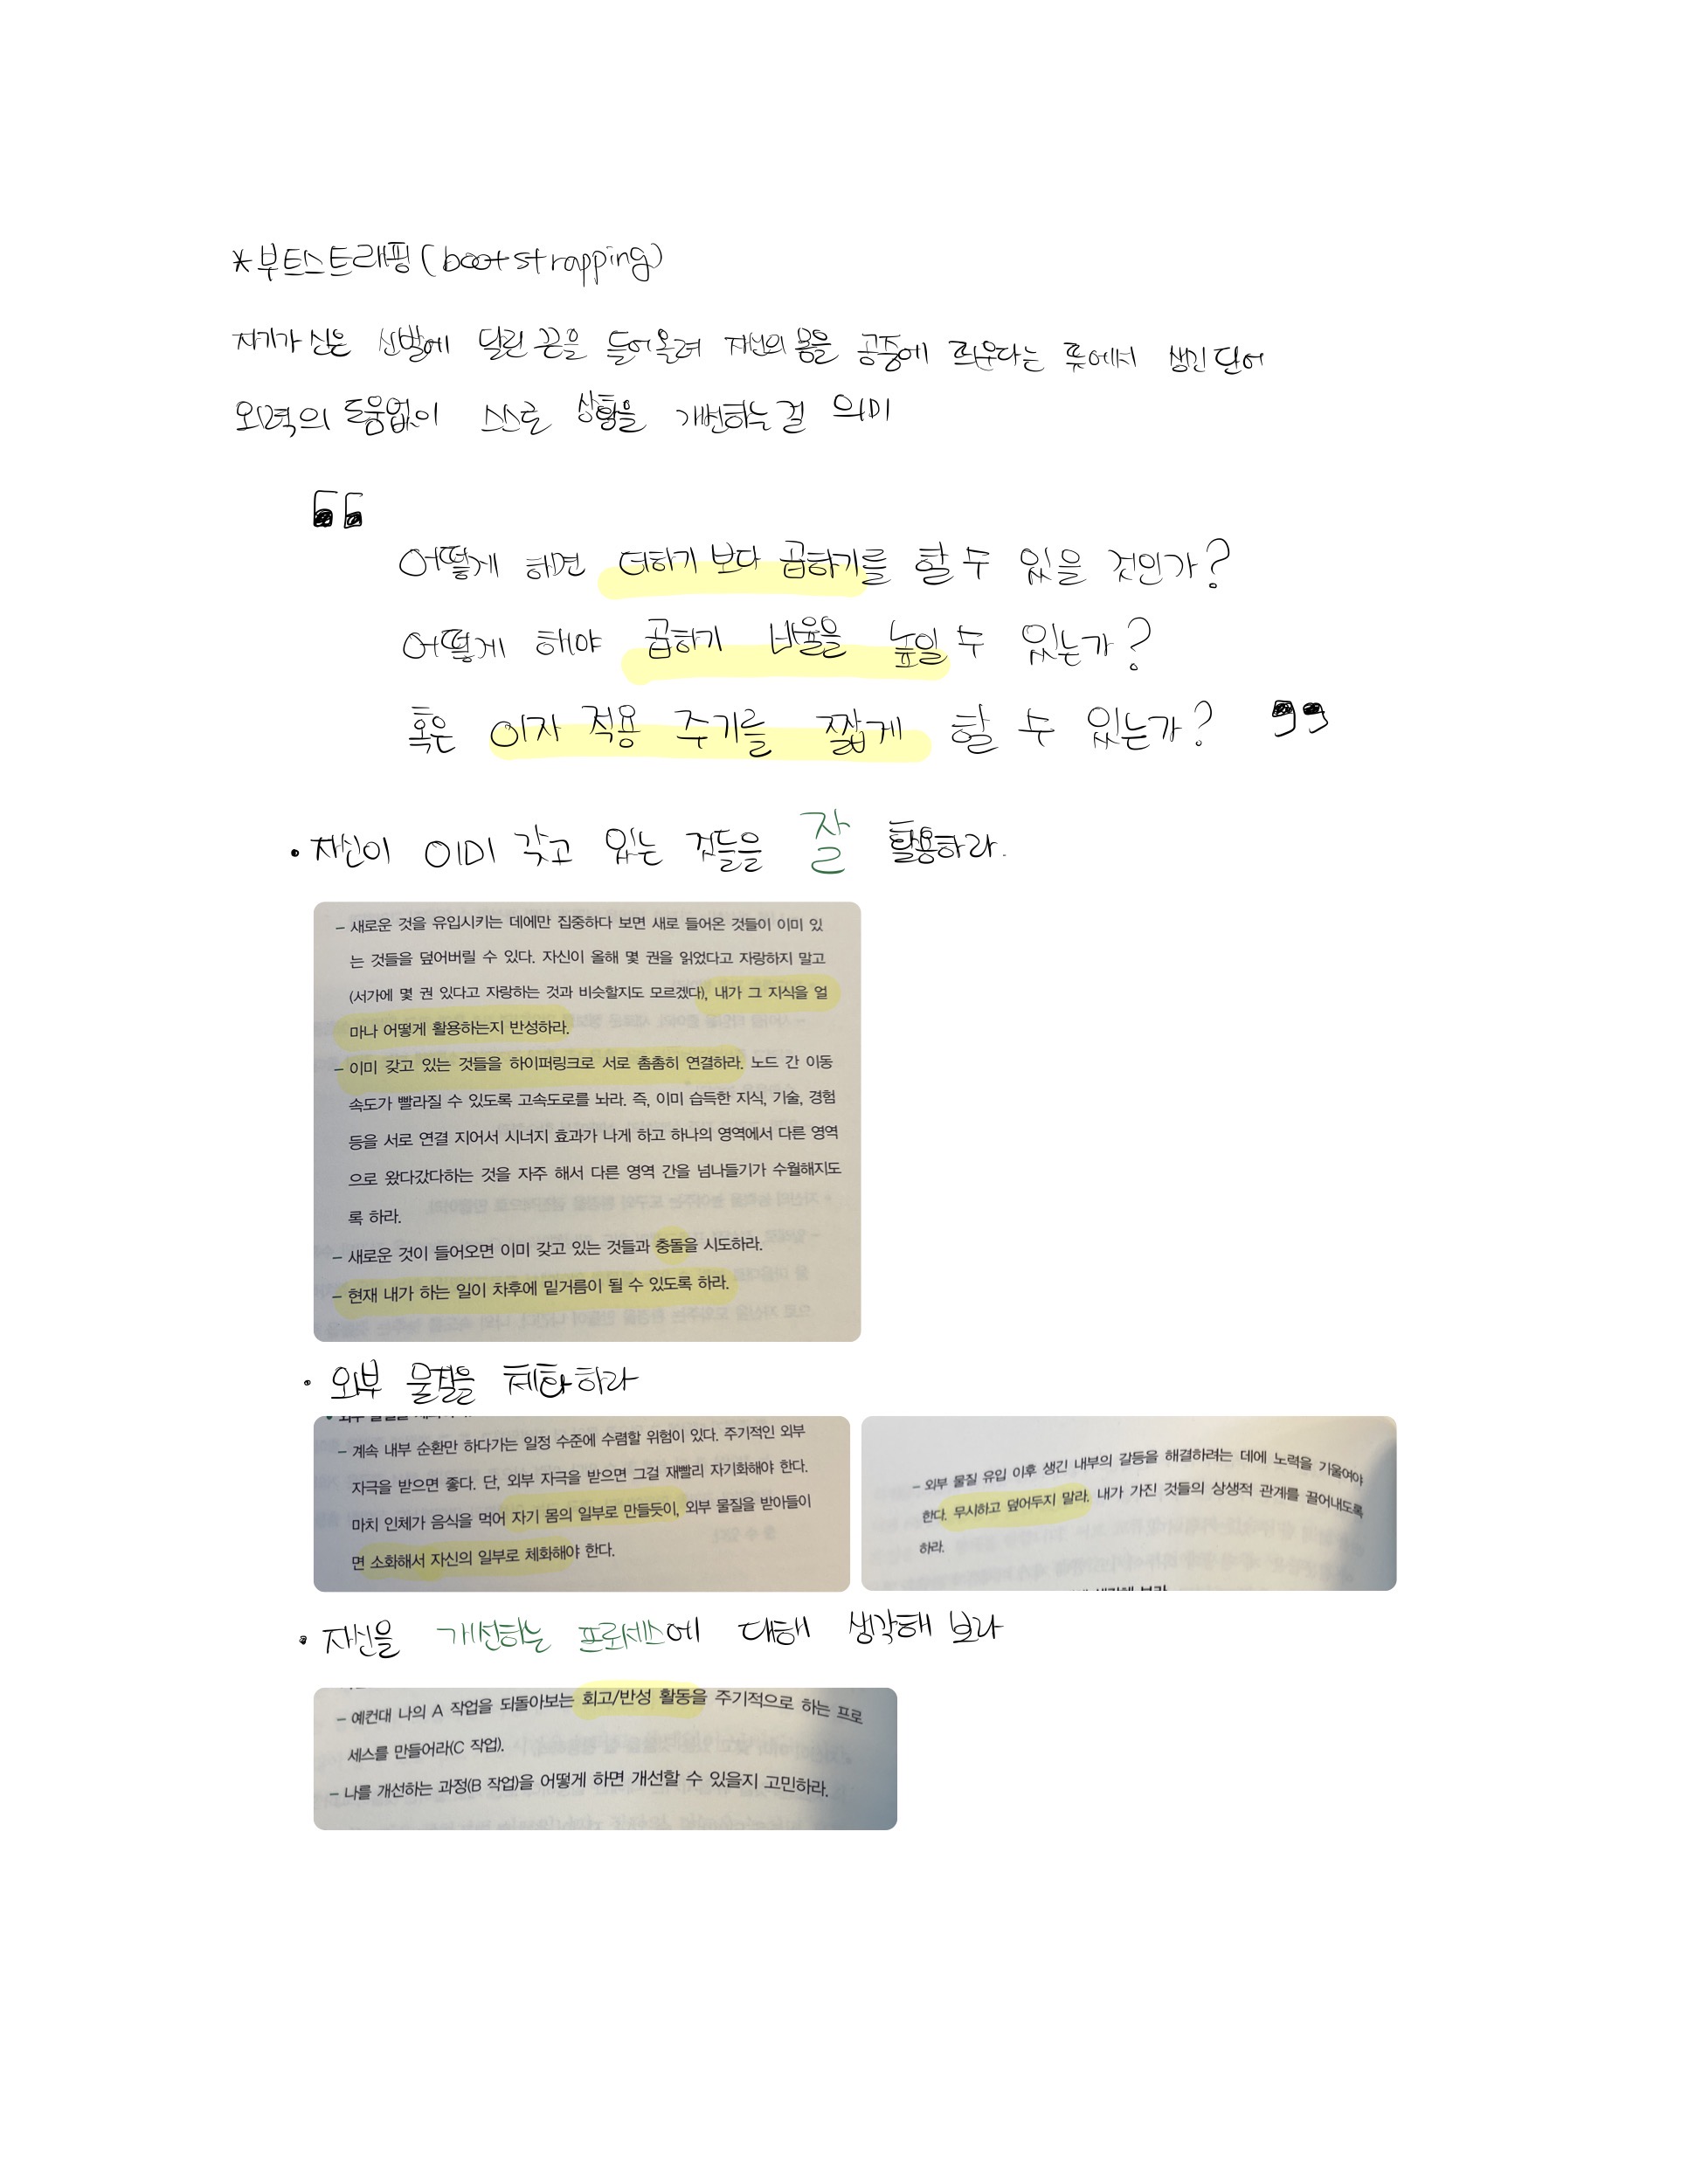 *부트스트래핑(bootstrapping)
자기가 신은 신발에 달린 끈을 들어올려 자신의 몸을 공중에 띄운다는 뜻에서 생긴 단어
외력의 도움없이 스스로 상황을 개변하는걸 의미
“
어떻게 하면 더하기 보다 곱하기를 할 수 있을 것인가?
어떻게 해야 곱하기 비율을 높일 수 있는가?
혹은 이자 적용 주기를 짧게 할 수 있는가? ”
• 자신이 이미 갖고 있는 것들을 잘 활용하라.
– 새로운 것을 유입시키는 데에만 집중하다 보면 새로 들어온 것들이 이미 있
는 것들을 덮어버릴 수 있다. 자신이 올해 몇 권을 읽었다고 자랑하지 말고
(서가에 몇 권 있다고 자랑하는 것과 비슷할지도 모르겠다), 내가 그 지식을 얼
마나 어떻게 활용하는지 반성하라.
– 이미 갖고 있는 것들을 하이퍼링크로 서로 촘촘히 연결하라. 노드 간 이동
속도가 빨라질 수 있도록 고속도로를 놔라. 즉, 이미 습득한 지식, 기술, 경험
등을 서로 연결 지어서 시너지 효과가 나게 하고 하나의 영역에서 다른 영역
으로 왔다갔다하는 것을 자주 해서 다른 영역 간을 넘나들기가 수월해지도
록 하라.
– 새로운 것이 들어오면 이미 갖고 있는 것들과 충돌을 시도하라.
– 현재 내가 하는 일이 차후에 밑거름이 될 수 있도록 하라.
• 외부 물질을 체화하라
– 계속 내부 순환만 하다가는 일정 수준에 수렴할 위험이 있다. 주기적인 외부
자극을 받으면 좋다. 단, 외부 자극을 받으면 그걸 재빨리 자기화해야 한다.
마치 인체가 음식을 먹어 자기 몸의 일부로 만들듯이, 외부 물질을 받아들이
면 소화해서 자신의 일부로 체화해야 한다.
– 외부 물질 유입 이후 생긴 내부의 갈등을 해결하려는 데에 노력을 기울여야
한다. 무시하고 덮어두지 말라. 내가 가진 것들의 상생적 관계를 끌어내도록
하라.
• 자신을 개선하는 프로세스에 대해 생각해 보라
– 예컨대 나의 A 작업을 되돌아보는 회고/반성 활동을 주기적으로 하는 프로
세스를 만들어라(C 작업).
– 나를 개선하는 과정(B 작업)을 어떻게 하면 개선할 수 있을지 고민하라.